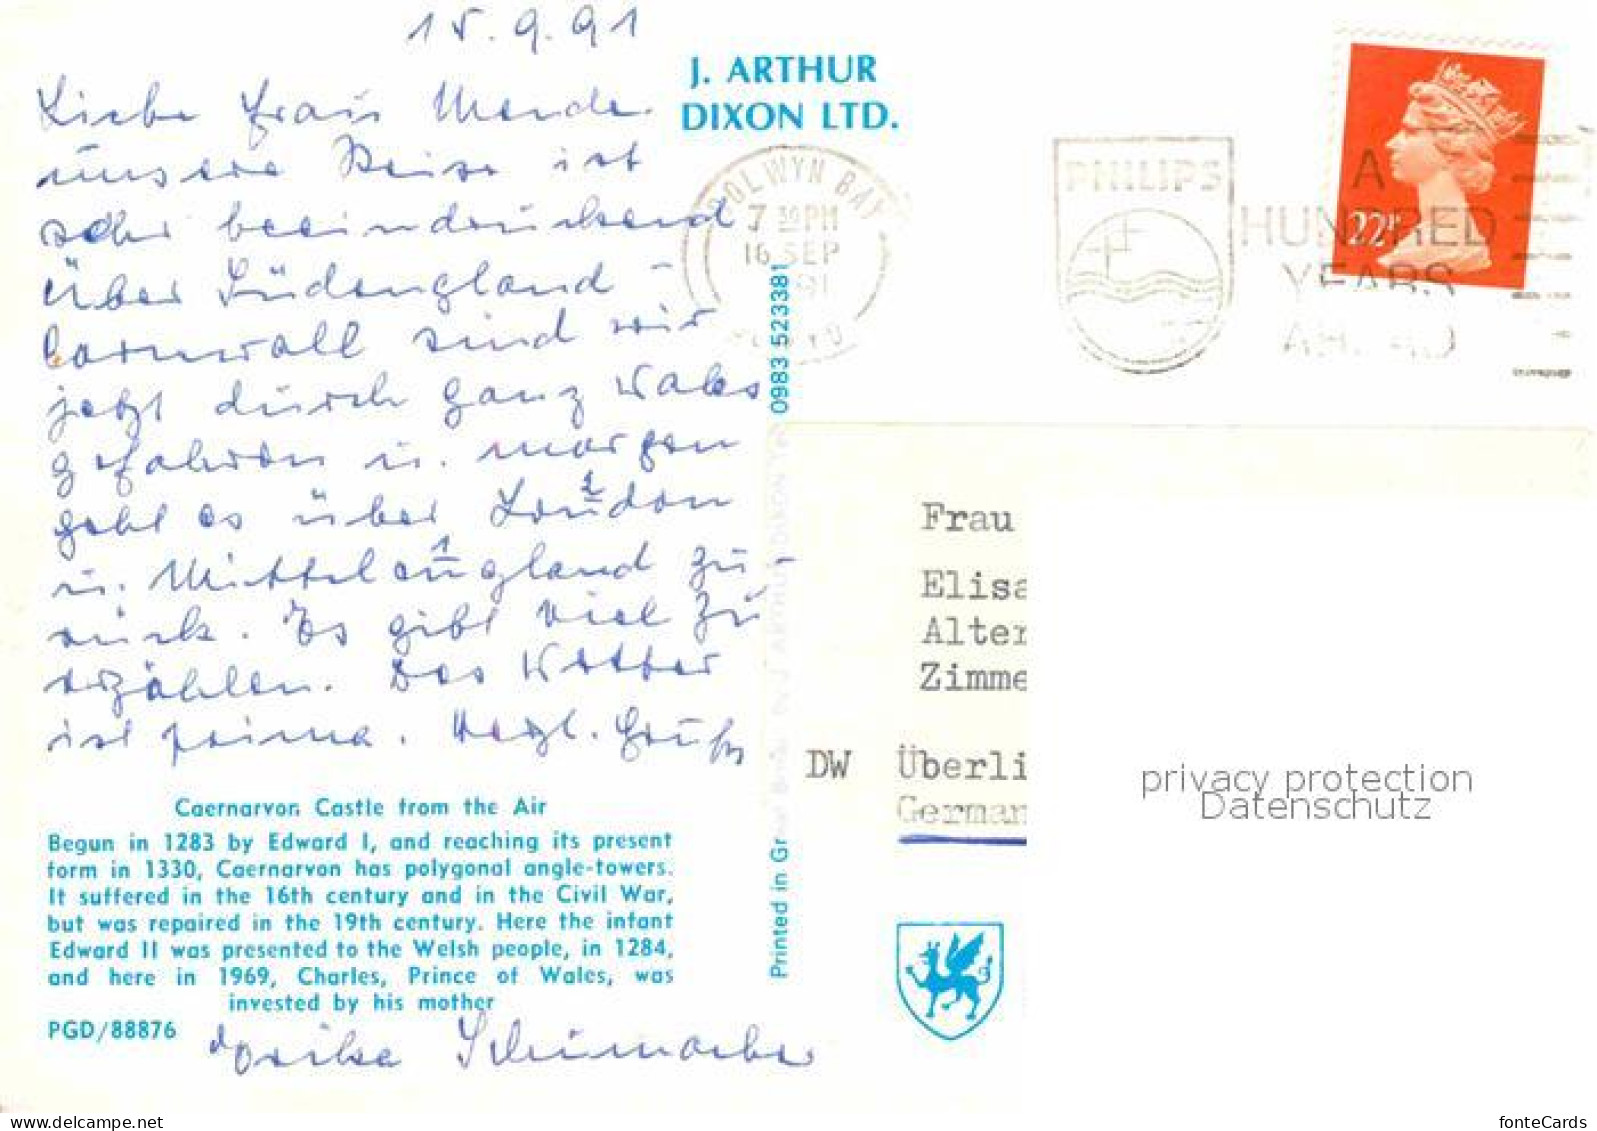 15.9.91
Liebe Frau Mende
unsere Reise ist
sehr beeindruckend
über Südengland -
Cornwall sind wir
jetzt durch ganz Wales
gefahren u. morgen
geht es über London 2
u. Mittelengland 1 zu-
rück. Es gibt viel zu
erzählen. Das Wetter
ist prima. Herzl. Grüße
J. ARTHUR
DIXON LTD.
COLWYN BAY
7 30 PM
16 SEP
PHILIPS
A
HUNDRED
YEARS
AHEAD
22P
Frau
Elisa
Alter
Zimme
DW Überli
German
privacy protection
Datenschutz
Printed in Gr
0983 523381
Caernarvon Castle from the Air
Begun in 1283 by Edward I, and reaching its present
form in 1330, Caernarvon has polygonal angle-towers.
It suffered in the 16th century and in the Civil War,
but was repaired in the 19th century. Here the infant
Edward II was presented to the Welsh people, in 1284,
and here in 1969, Charles, Prince of Wales, was
invested by his mother
PGD/88876
My-hanh.com
fonteCards